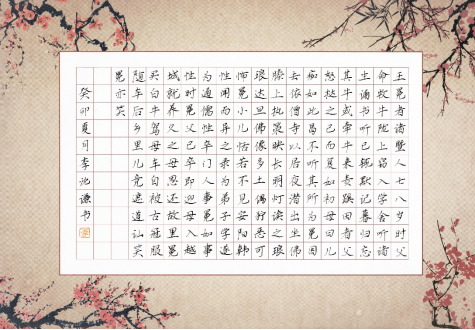 王冕者诸暨人七八岁时父
命牧牛陇上窃入学舍听诸
生诵书听已辄默记暮归忘
其牛或牵牛来责蹊田者父
怒挞之已而复如初母曰儿
痴如此曷不听其所为冕因
去依僧寺以居夜潜出坐佛
膝上执策映长明灯读之琅
琅达旦佛像多土偶狞恶可
怖冕小儿恬若不见安阳韩
性闻而异之录为弟子学遂
为通儒性卒门人事冕如事
性时冕父已卒即迎母入越
城就养久之母思还故里冕
买白牛驾母车自被古冠服
随车后乡里儿竞遮道讪笑
冕亦笑
癸卯夏月李池谦书